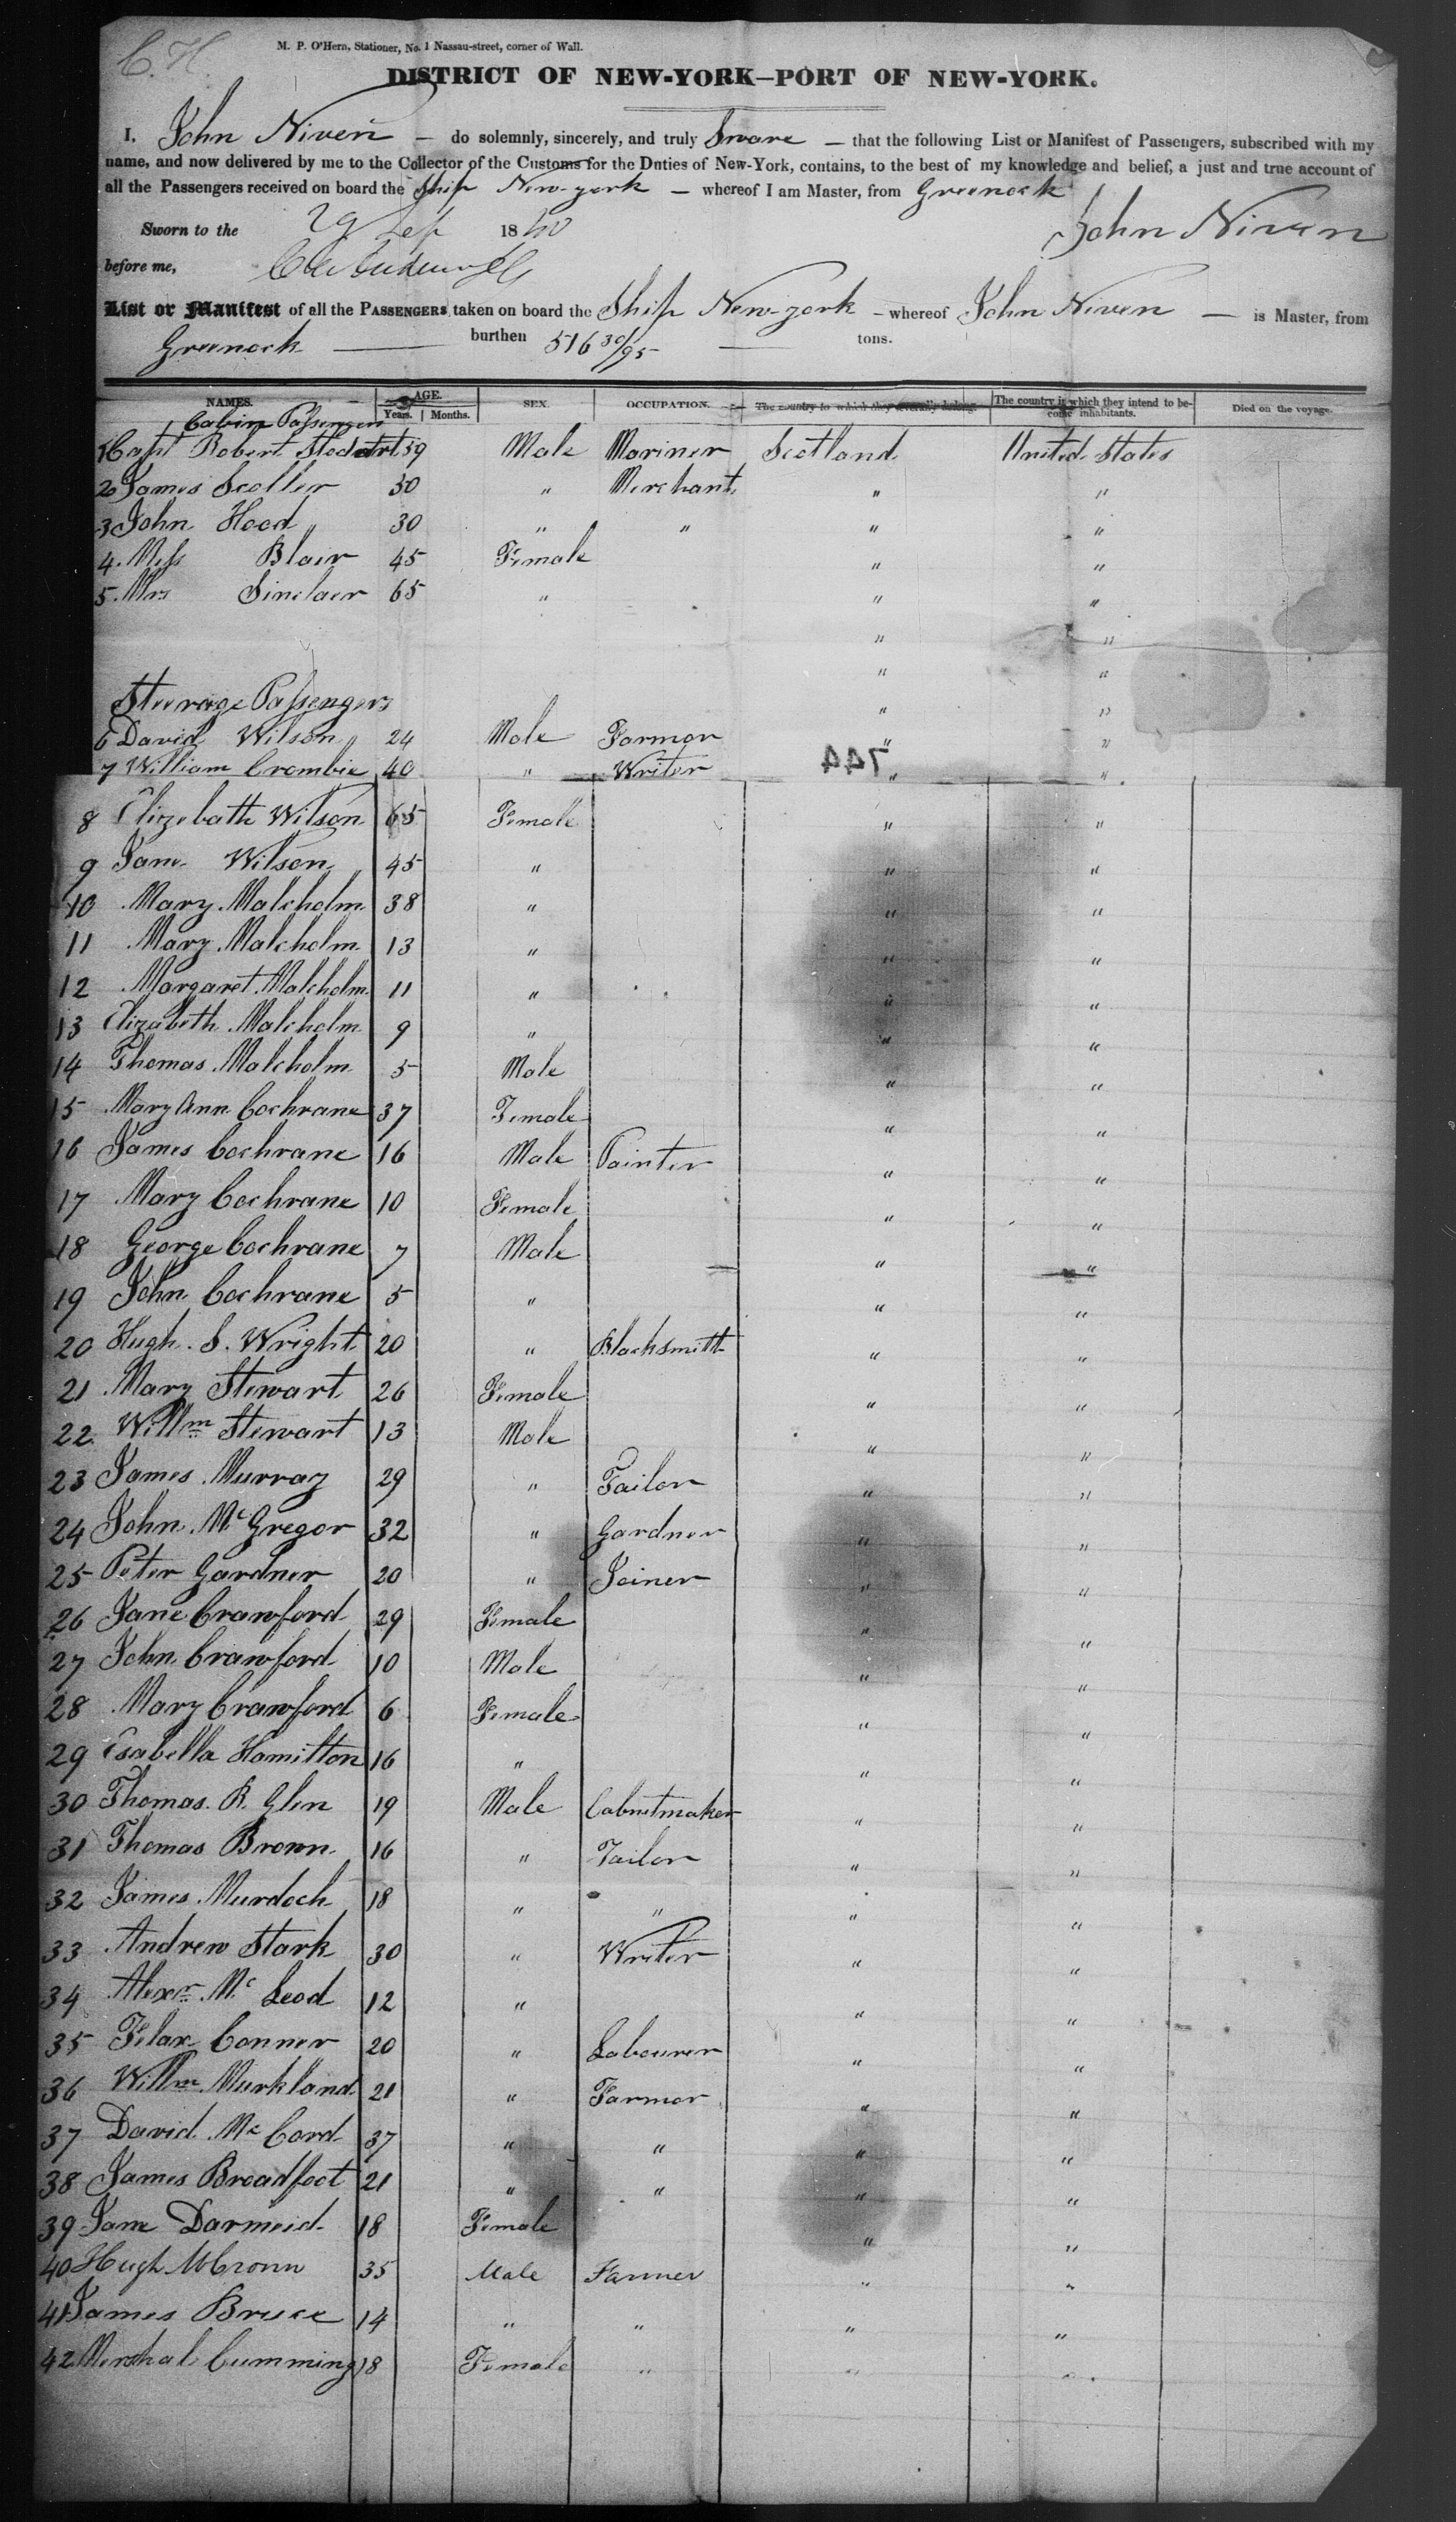 C. H.
M. P. O'Hern, Stationer, No. 1 Nassau-street, corner of Wall.
DISTRICT OF NEW-YORK—PORT OF NEW-YORK.
I, John Niven — do solemnly, sincerely, and truly Sware — that the following List or Manifest of Passengers, subscribed with my
name, and now delivered by me to the Collector of the Customs for the Duties of New-York, contains, to the best of my knowledge and belief, a just and true account of
all the Passengers received on board the Ship New-york — whereof I am Master, from Greenock
Sworn to the 29 Sep 1840 John Niven
before me,
List or Manifest of all the PASSENGERS taken on board the Ship New-york — whereof John Niven — is Master, from
Greenock — burthen 516 30/95 — tons.
NAMES. AGE. Years. Months. SEX. OCCUPATION. The country to which they severally belong. The country in which they intend to become inhabitants. Died on the voyage.
Cabin Passengers
1 Capt Robert Stoddart 59 Male Mariner Scotland United States
2 James Scotler 30 " Merchant " "
3 John Hood 30 " " " "
4. Miss Blair 45 Female " "
5. Mrs Sinclaer 65 " " "
" "
" "
Steerage Passengers " "
6 David Wilson 24 Male Farmer " "
744
7 William Crombie 40 " Writer " "
8 Elizebath Wilson 65 Female " "
9 Jane Wilson 45 " " "
10 Mary Malcholm 38 " " "
11 Mary Malcholm 13 " " "
12 Margaret Malcholm 11 " " "
13 Elizabeth Malcholm 9 " " "
14 Thomas Malcholm 5 Male " "
15 Mary Ann Cochrane 37 Female " "
16 James Cochrane 16 Male Painter " "
17 Mary Cochrane 10 Female " "
18 George Cochrane 7 Male " "
19 John Cochrane 5 " " "
20 Hugh. S. Wright 20 " Blacksmith " "
21 Mary Stewart 26 Female " "
22 Willm Stewart 13 Male " "
23 James Murray 29 " Tailor " "
24 John McGregor 32 " Gardner " "
25 Peter Gardner 20 " Joiner " "
26 Jane Crawford 29 Female " "
27 John Crawford 10 Male " "
28 Mary Crawford 6 Female " "
29 Esabella Hamilton 16 " " "
30 Thomas. R. Glen 19 Male Cabnetmaker " "
31 Thomas Brown 16 " Tailor " "
32 James Murdoch 18 " " " "
33 Andrew Stark 30 " Writer " "
34 Alexr Mc Leod 12 " " "
35 Felax Conner 20 " Labourer " "
36 Willm Murkland 21 " Farmer " "
37 David Mc Cord 37 " " " "
38 James Broadfoot 21 " " " "
39 Jane Darmeid 18 Female " "
40 Hugh McCronn 35 Male Farmer " "
41 James Bruce 14 " " " "
42 Marshal Cumming 18 Female " " "